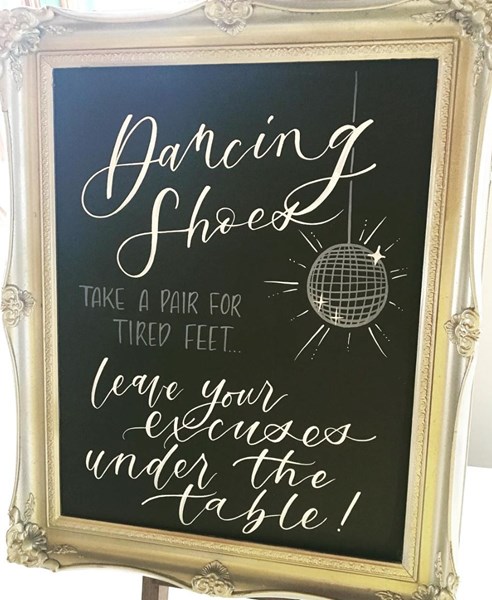 Dancing
Shoes
TAKE A PAIR FOR
TIRED FEET...
leave your
excuses
under the
table!